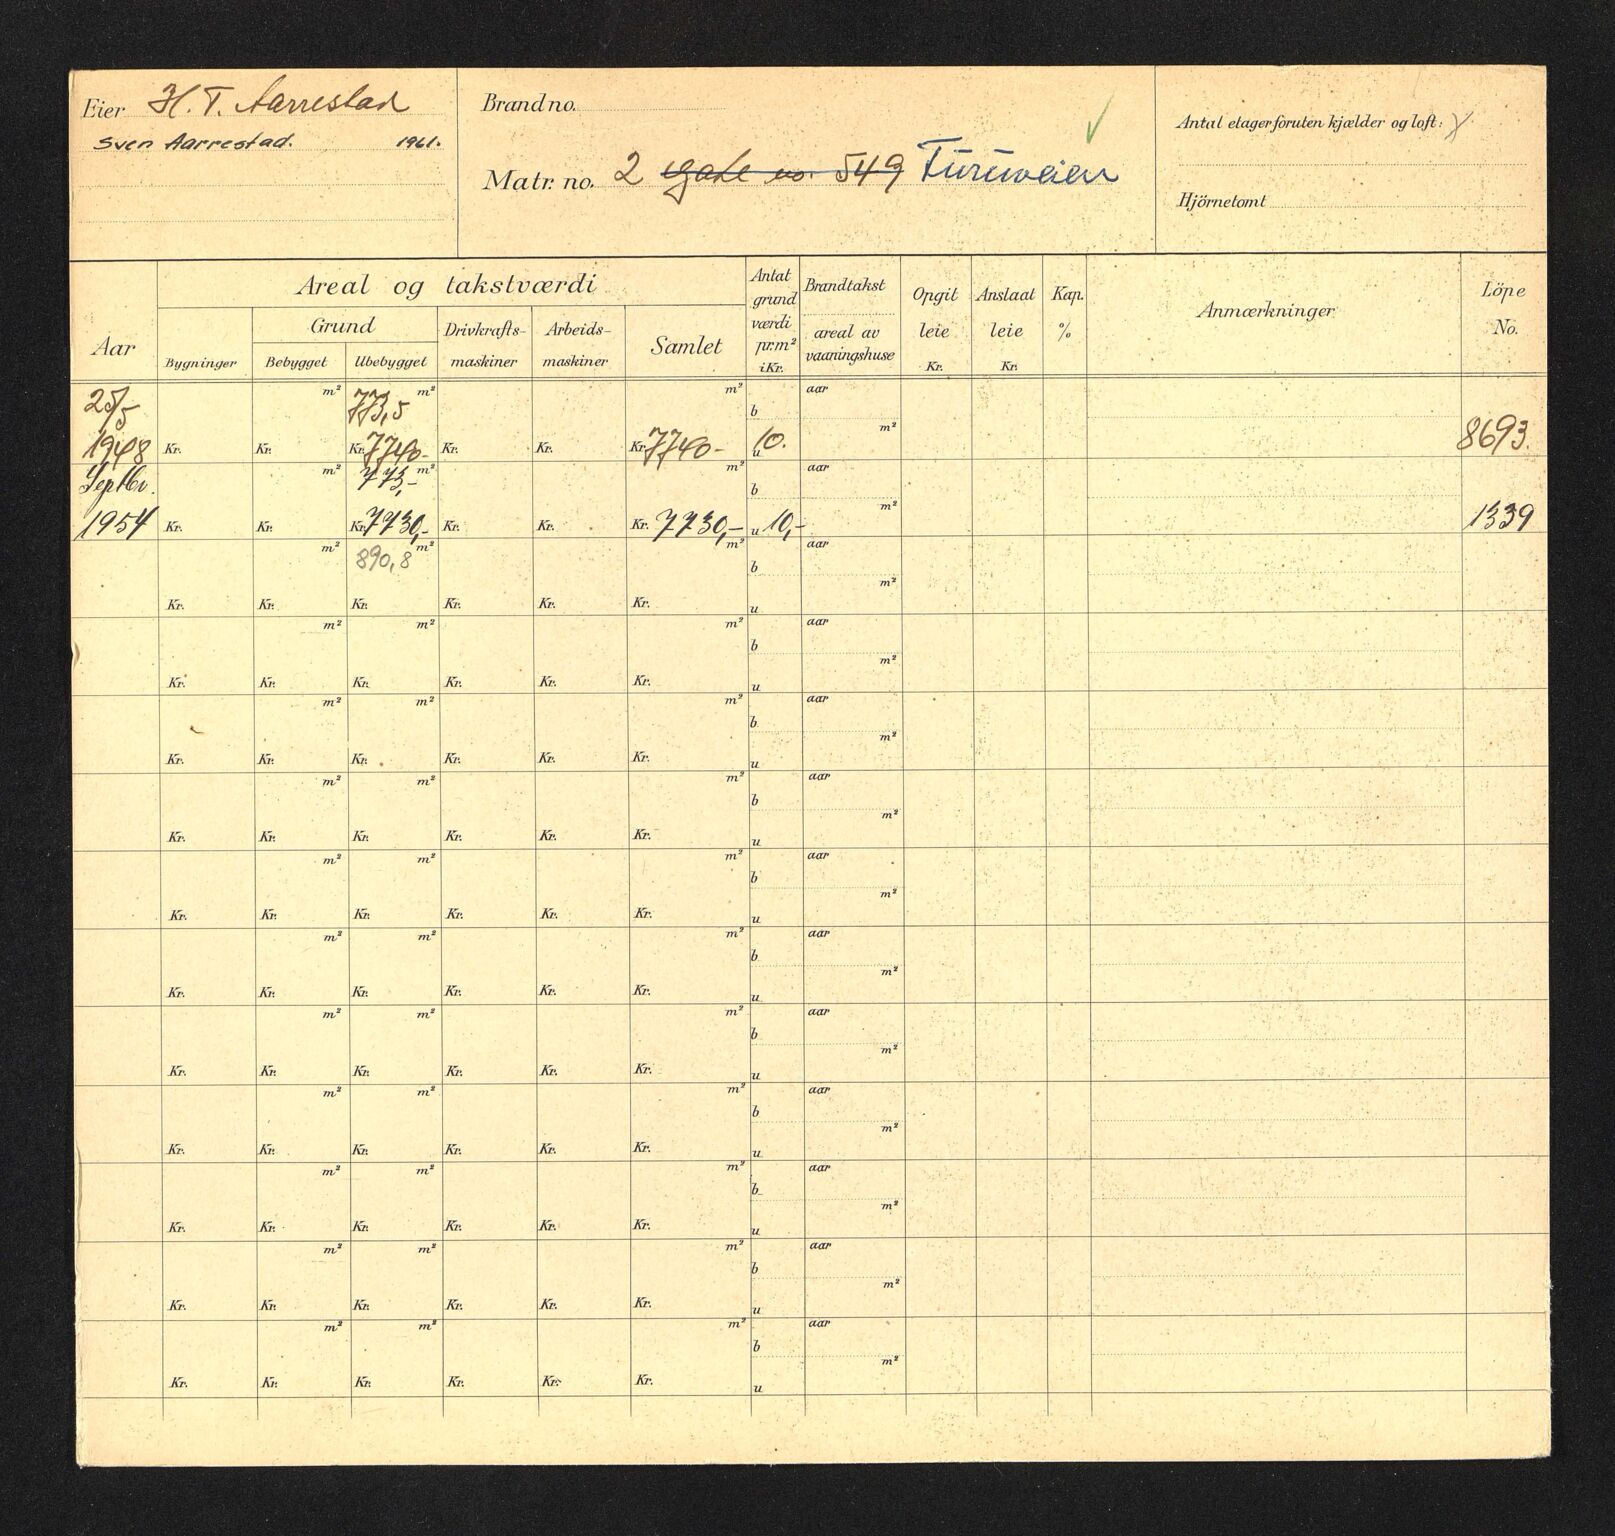 Eier H. T. Aarrestad
Sven Aarrestad. 1961.
Brand no.
Matr. no. 2 gate no. 549 Furuveien
Antal etager foruten kjælder og loft:
Hjörnetomt
Aar
Areal og takstværdi
Bygninger
Grund
Bebygget
Ubebygget
Drivkrafts-
maskiner
Arbeids-
maskiner
Samlet
Antat
grund
værdi
pr. m²
i Kr.
Brandtakst
areal av
vaaningshuse
Opgit
leie
Kr.
Anslaat
leie
Kr.
Kap.
%
Anmærkninger
Löpe
No.
25/5 m² 773,5 m² m² b aar
m²
1948 Kr. Kr. Kr. 7740- Kr. Kr. Kr. 7740- u 10. 8693.
Septbr. m² 773,- m² m² b aar
m²
1954 Kr. Kr. Kr. 7730,- Kr. Kr. Kr. 7730,- u 10,- 1339
m² 890,8 m² m² b aar
m²
Kr. Kr. Kr. Kr. Kr. Kr. u
m² m² m² b aar
m²
Kr. Kr. Kr. Kr. Kr. Kr. u
m² m² m² b aar
m²
Kr. Kr. Kr. Kr. Kr. Kr. u
m² m² m² b aar
m²
Kr. Kr. Kr. Kr. Kr. Kr. u
m² m² m² b aar
m²
Kr. Kr. Kr. Kr. Kr. Kr. u
m² m² m² b aar
m²
Kr. Kr. Kr. Kr. Kr. Kr. u
m² m² m² b aar
m²
Kr. Kr. Kr. Kr. Kr. Kr. u
m² m² m² b aar
m²
Kr. Kr. Kr. Kr. Kr. Kr. u
m² m² m² b aar
m²
Kr. Kr. Kr. Kr. Kr. Kr. u
m² m² m² b aar
m²
Kr. Kr. Kr. Kr. Kr. Kr. u
m² m² m² b aar
m²
Kr. Kr. Kr. Kr. Kr. Kr. u